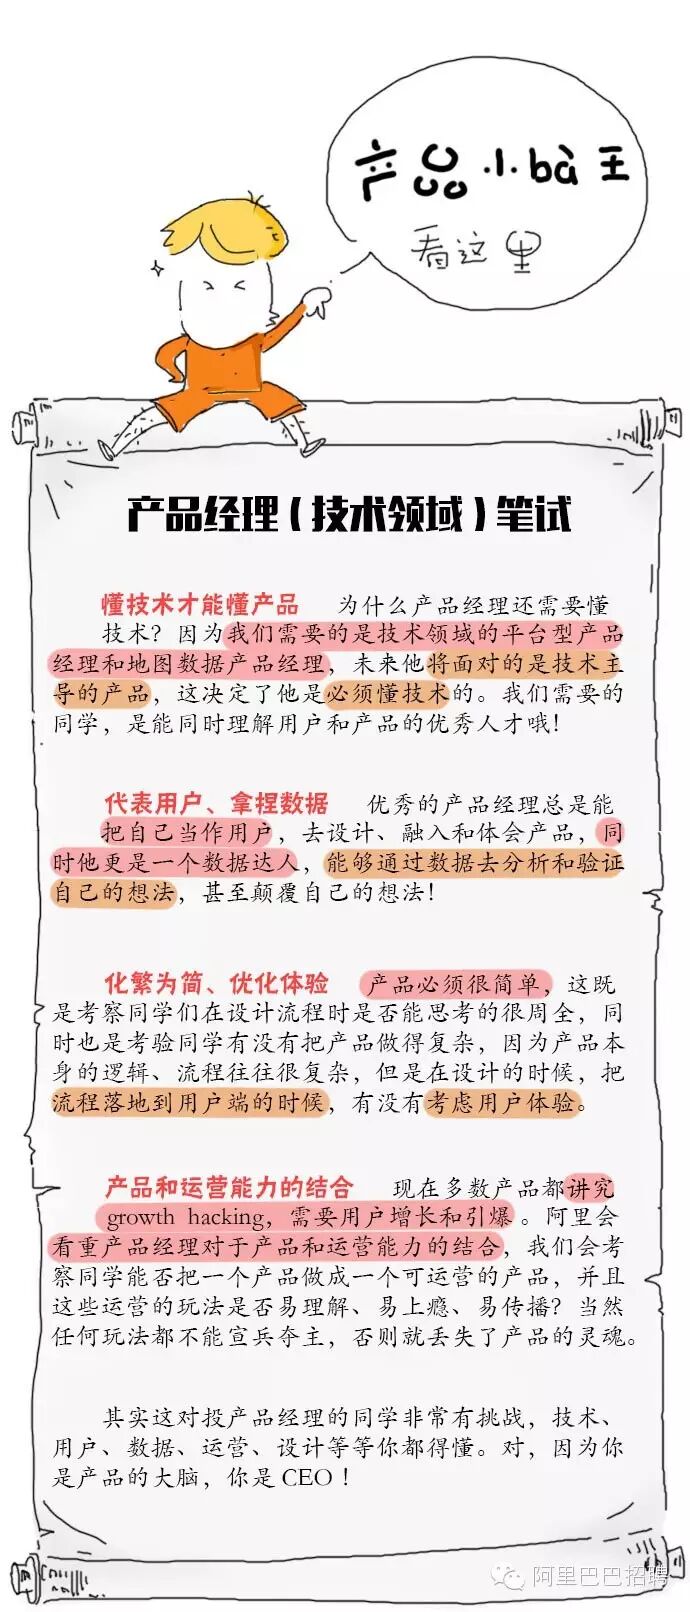 产品小bà王
看这里
产品经理（技术领域）笔试
懂技术才能懂产品 为什么产品经理还需要懂
技术？因为我们需要的是技术领域的平台型产品
经理和地图数据产品经理，未来他将面对的是技术主
导的产品，这决定了他是必须懂技术的。我们需要的
同学，是能同时理解用户和产品的优秀人才哦！
代表用户、拿捏数据 优秀的产品经理总是能
把自己当作用户，去设计、融入和体会产品，同
时他更是一个数据达人，能够通过数据去分析和验证
自己的想法，甚至颠覆自己的想法！
化繁为简、优化体验 产品必须很简单，这既
是考察同学们在设计流程时是否能思考的很周全，同
时也是考验同学有没有把产品做得复杂，因为产品本
身的逻辑、流程往往很复杂，但是在设计的时候，把
流程落地到用户端的时候，有没有考虑用户体验。
产品和运营能力的结合 现在多数产品都讲究
growth hacking，需要用户增长和引爆。阿里会
看重产品经理对于产品和运营能力的结合，我们会考
察同学能否把一个产品做成一个可运营的产品，并且
这些运营的玩法是否易理解、易上瘾、易传播？当然
任何玩法都不能宣兵夺主，否则就丢失了产品的灵魂。
其实这对投产品经理的同学非常有挑战，技术、
用户、数据、运营、设计等等你都得懂。对，因为你
是产品的大脑，你是 CEO！
阿里巴巴招聘